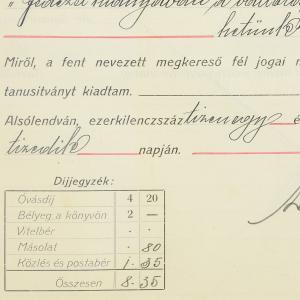 hetünk
Miről, a fent nevezett megkereső fél jogai m
tanusitványt kiadtam.
Alsólendván, ezerkilenczszáz tizenegy é
tizedik napján.
Dijjegyzék:
Óvásdij 4 20
Bélyeg a könyvön 2 —
Vitelbér . .
Másolat . 80
Közlés és postabér 1. 35
Összesen 8. 35